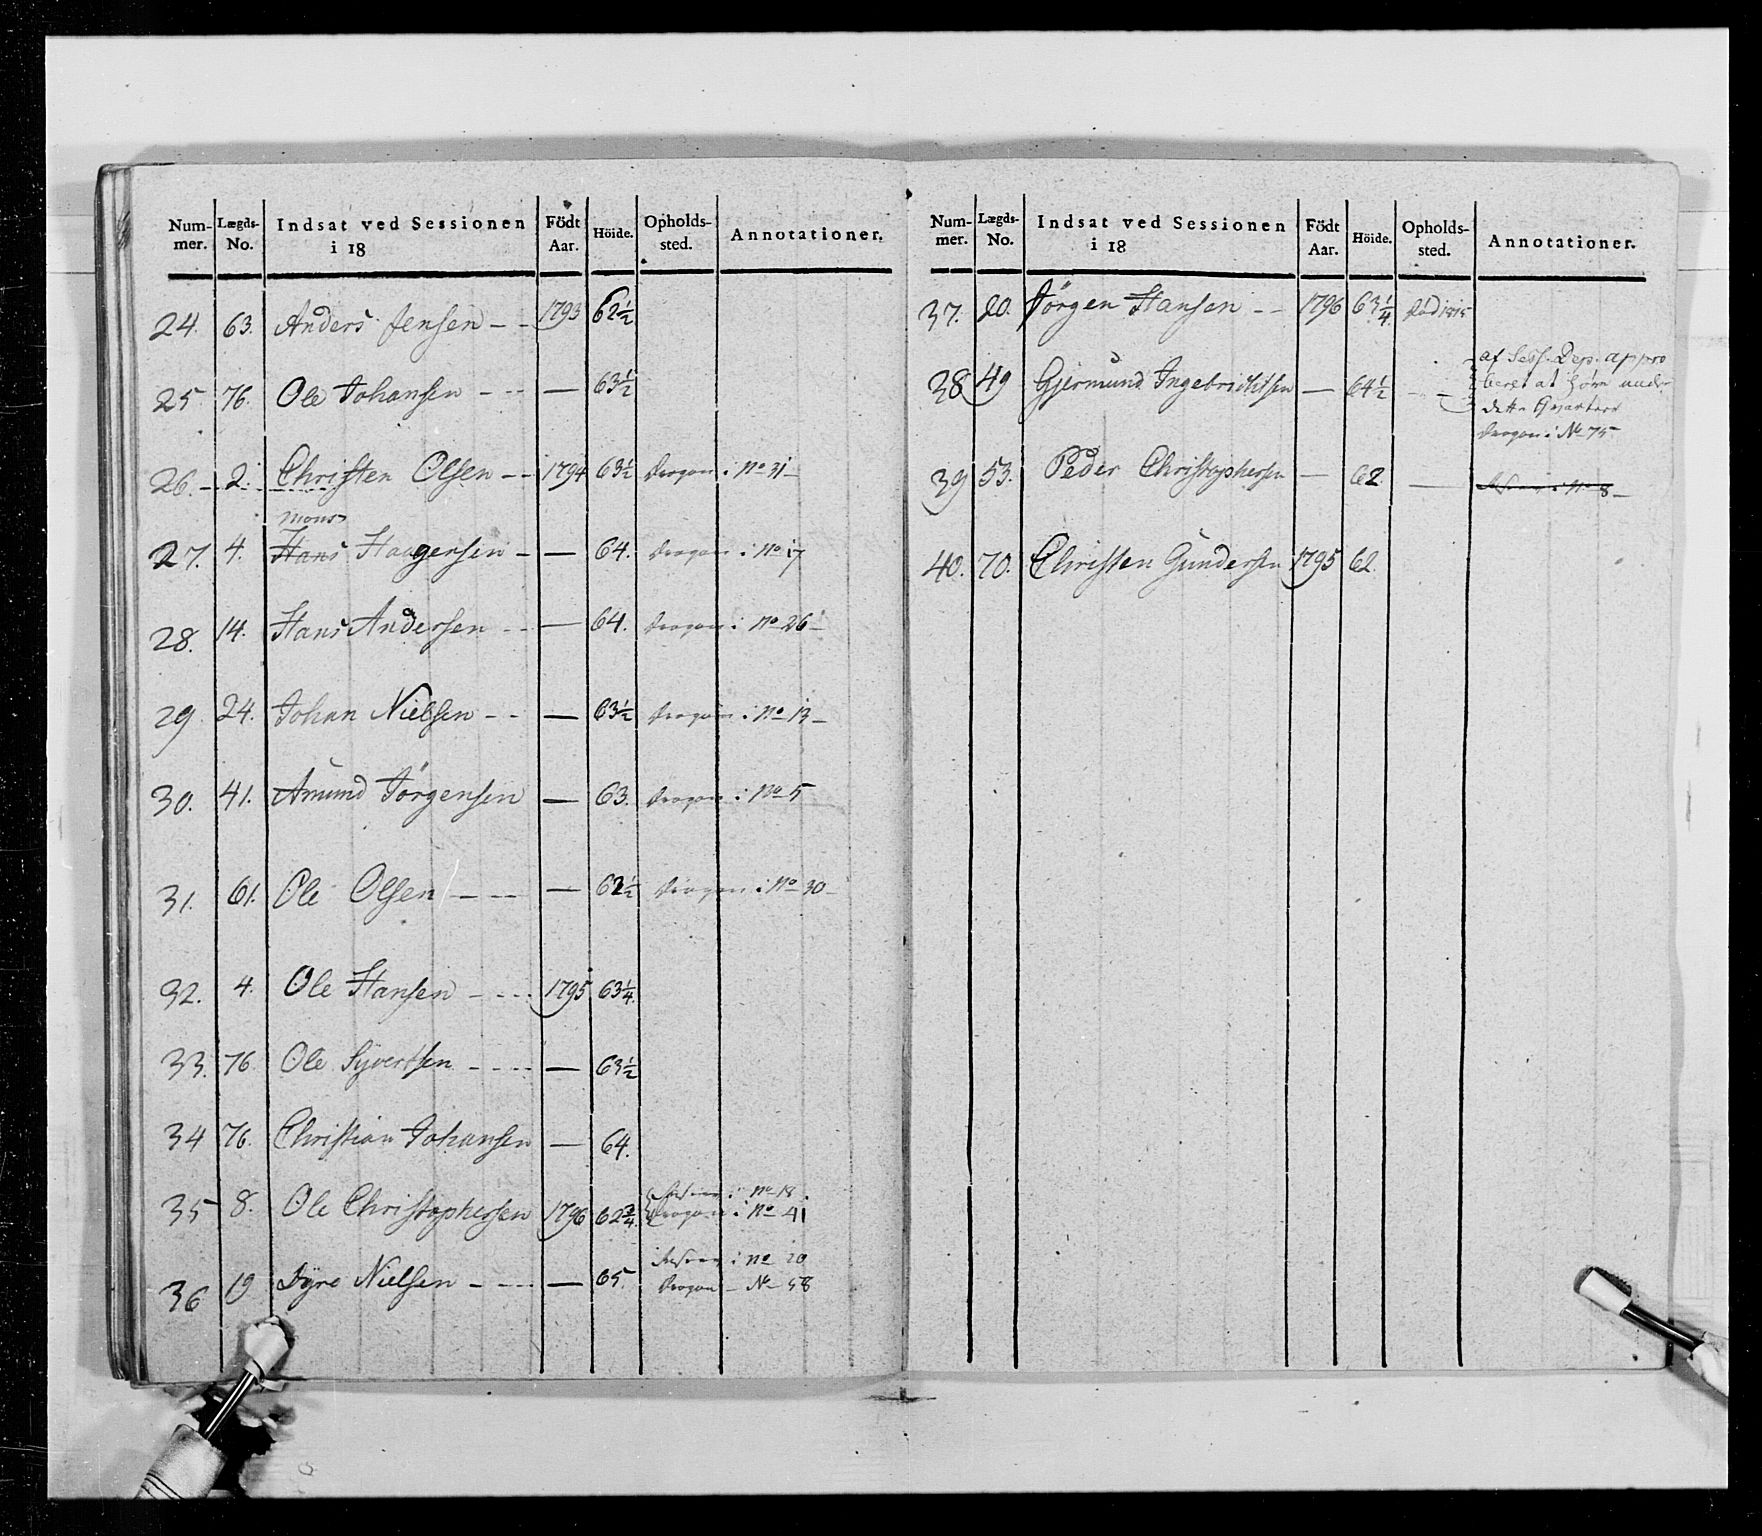 Num-mer. Lægds-No. Indsat ved Sessionen i 18 Födt Aar. Höide. Opholds-sted. Annotationer.
24. 63. Anders Jensen - - 1793 62½
25 76. Ole Johansen - - - — 63½
26. - 2. Christen Olsen - - 1794 63½ Dragon i No 31 -
Mons
27. 4. Hans Haagensen - — 64. Dragon i No 17
28. 14. Hans Andersen - - — 64. Dragon i No 26 -
29 24. Johan Nielsen - - — 63½ Dragon i No 13 -
30. 41. Amund Jörgensen — 63. Dragon i No 5
31. 61. Ole Olsen - - — 62½ Dragon i No 30 -
32. 4. Ole Hansen - - - 1795 63¼
33. 76. Ole Syvertsen - - - - — 63½
34 76. Christian Johansen — 64.
35 8. Ole Christophersen 1796 62¾ Reserv i No 18
Dragon i No 41
36 19 Dyre Nielsen - - - - — 65. Reserv i No 20
Dragon - No 58
Num-mer. Lægds-No. Indsat ved Sessionen i 18 Födt Aar. Höide. Opholds-sted. Annotationer.
37. 20. Jörgen Hansen - - 1796 63¼ Död 1815
38 49 Gjermund Ingebrichtsen — 64½ af Sess. Dep. appro
beret at höre under
dette Qvarteer
Dragon i No 75
39 53. Peder Christophersen — 62. — Reserv i No 8 -
40. 70. Christen Gundersen 1795 62.